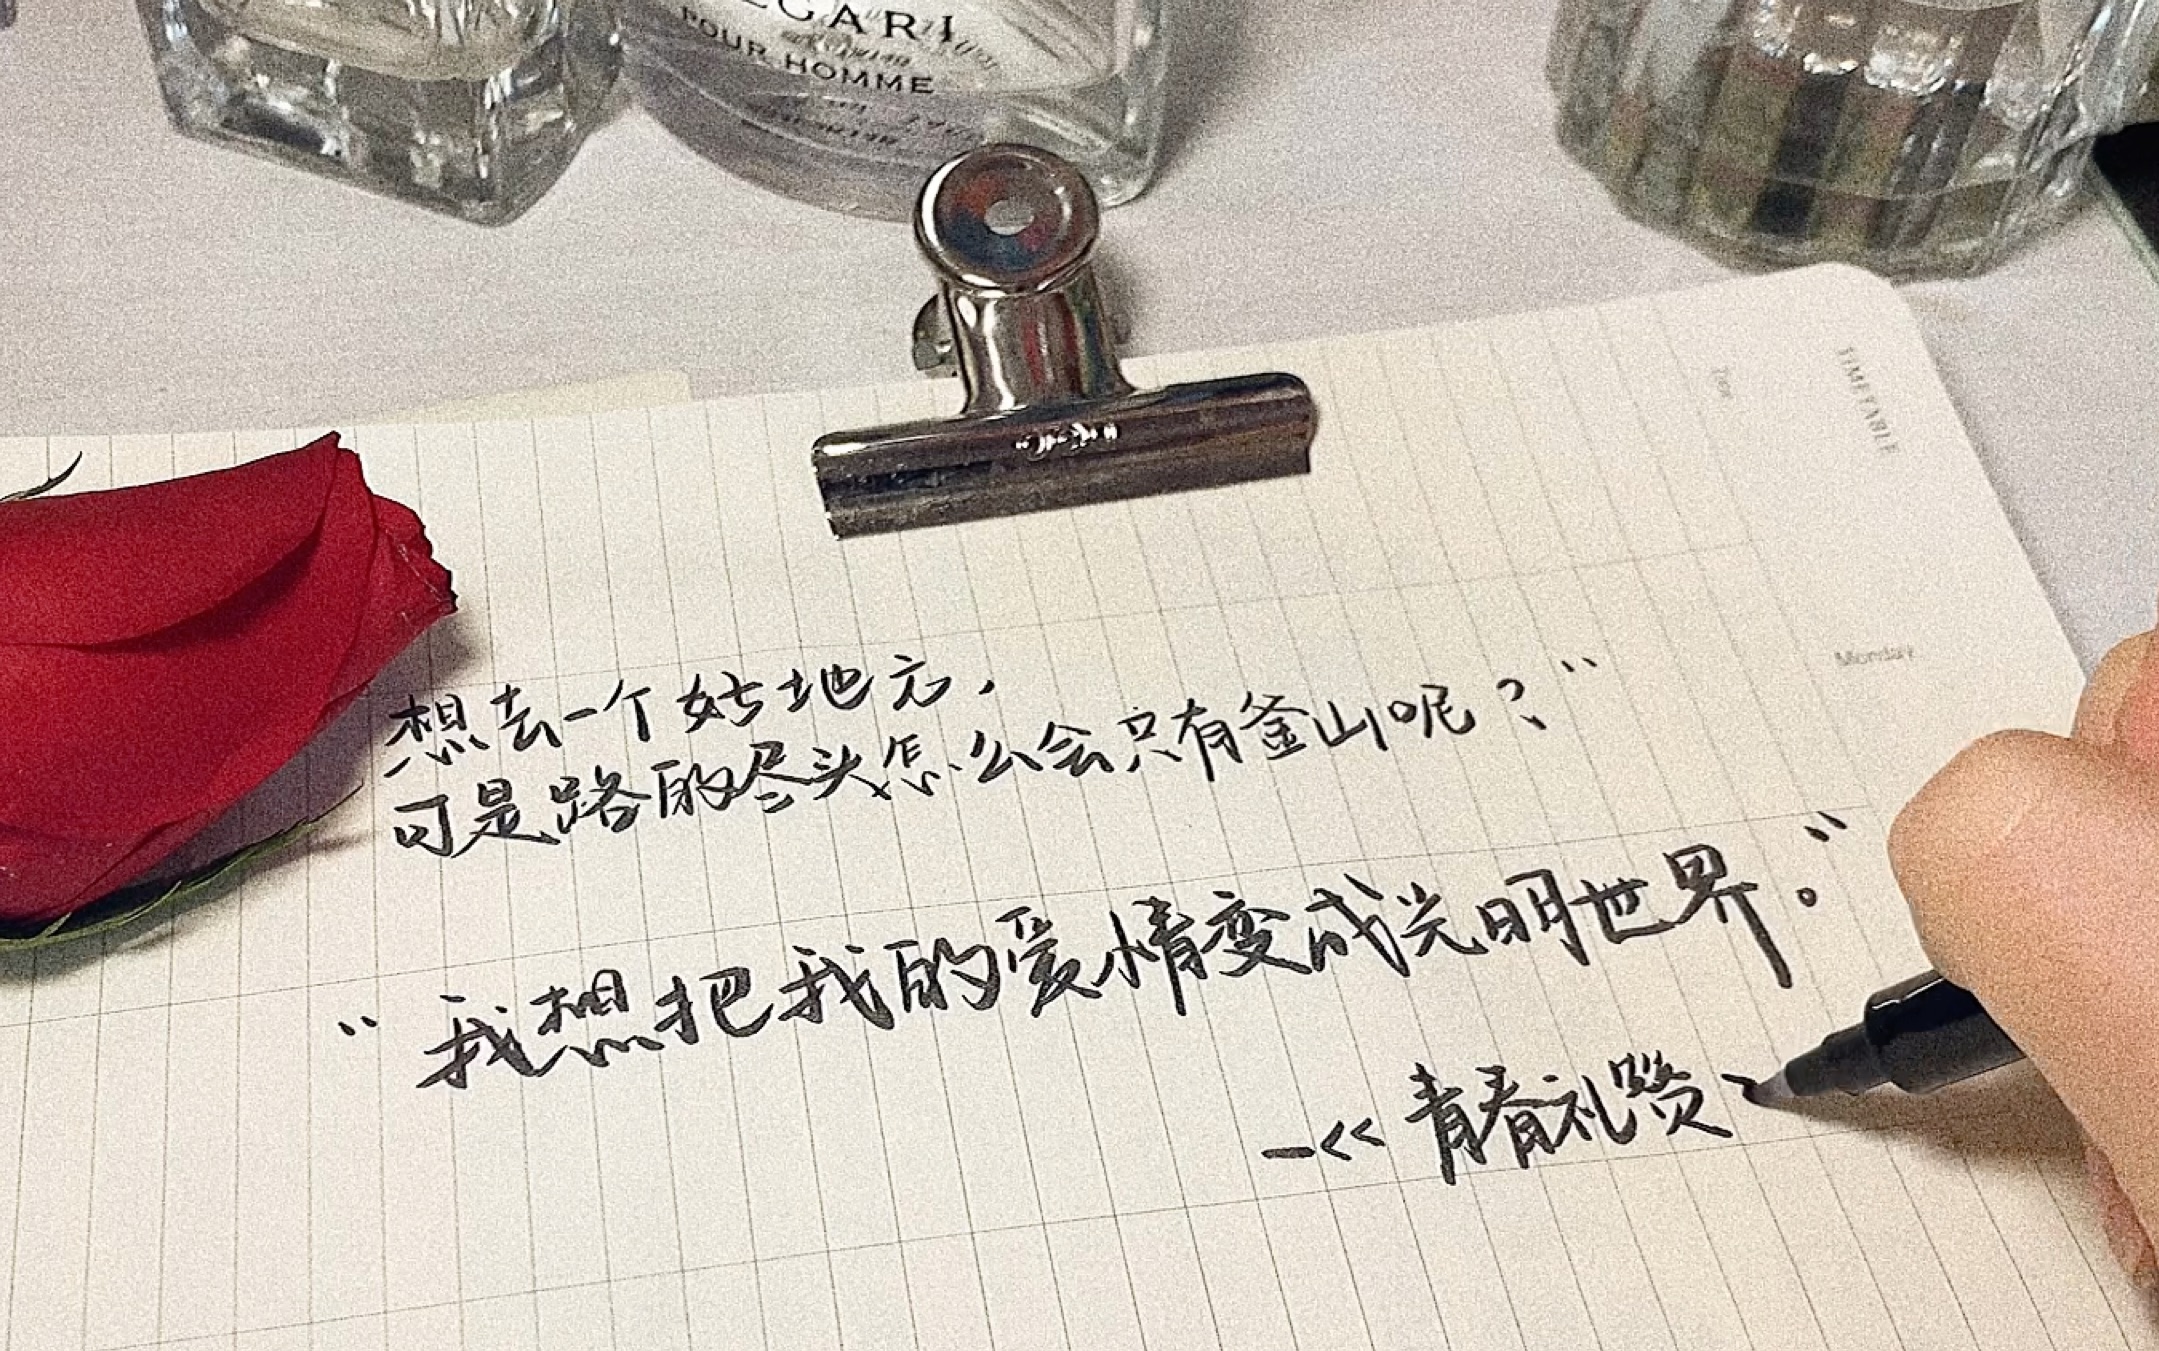 GARI
POUR HOMME
TIMETABLE
Monday
想去一个好地方，
可是路的尽头怎么会只有釜山呢？”
“我想把我的爱情变成光明世界。”
—《青春礼赞